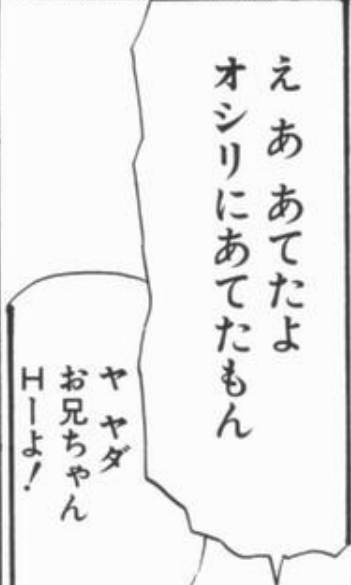 え あ あてたよ
オシリにあてたもん
ヤ ヤダ
お兄ちゃん
Hーよ!